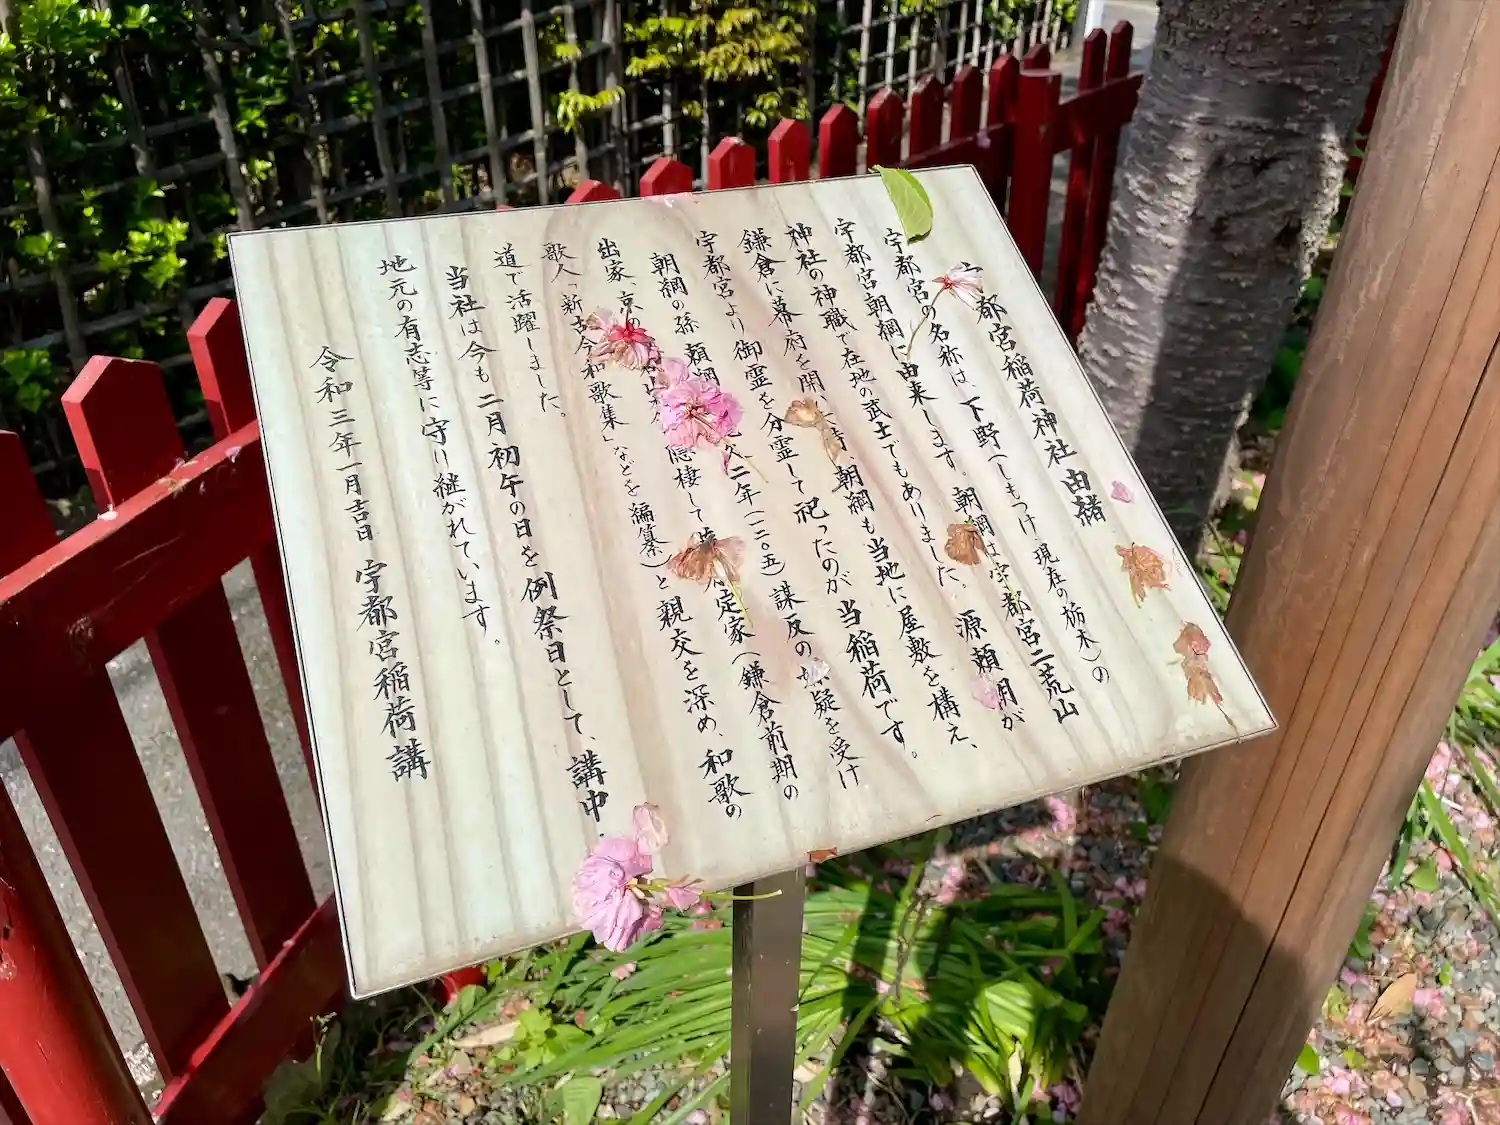 都宮稲荷神社由緒
宇都宮の名称は、下野(しもつけ、現在の栃木)の
宇都宮朝綱に由来します。朝綱は宇都宮二荒山
神社の神職で在地の武士でもありました、源頼が
鎌倉に幕府を開 朝綱も当地に屋敷を構え、
宇都宮より御霊を分霊して祀ったのが当稲荷です。
朝綱の孫頼綱 二年(一二〇五)謀反の疑を受け
出家、京の 隠棲して 定家(鎌倉前期の
歌人「新古今和歌集」などを編纂)と親交を深め、和歌の
道で活躍しました。
当社は今も二月初午の日を例祭日として、講中
地元の有志等に守り継がれています。
令和三年一月吉日 宇都宮稲荷講